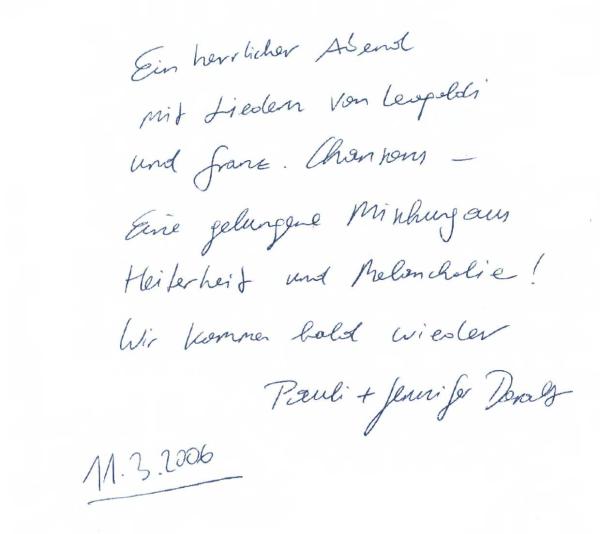 Ein herrlicher Abend
mit Liedern von Leopoldi
und franz. Chansons –
Eine gelungene Mischung aus
Heiterkeit und Melancholie!
Wir kommen bald wieder
+ Jennifer
11.3.2006